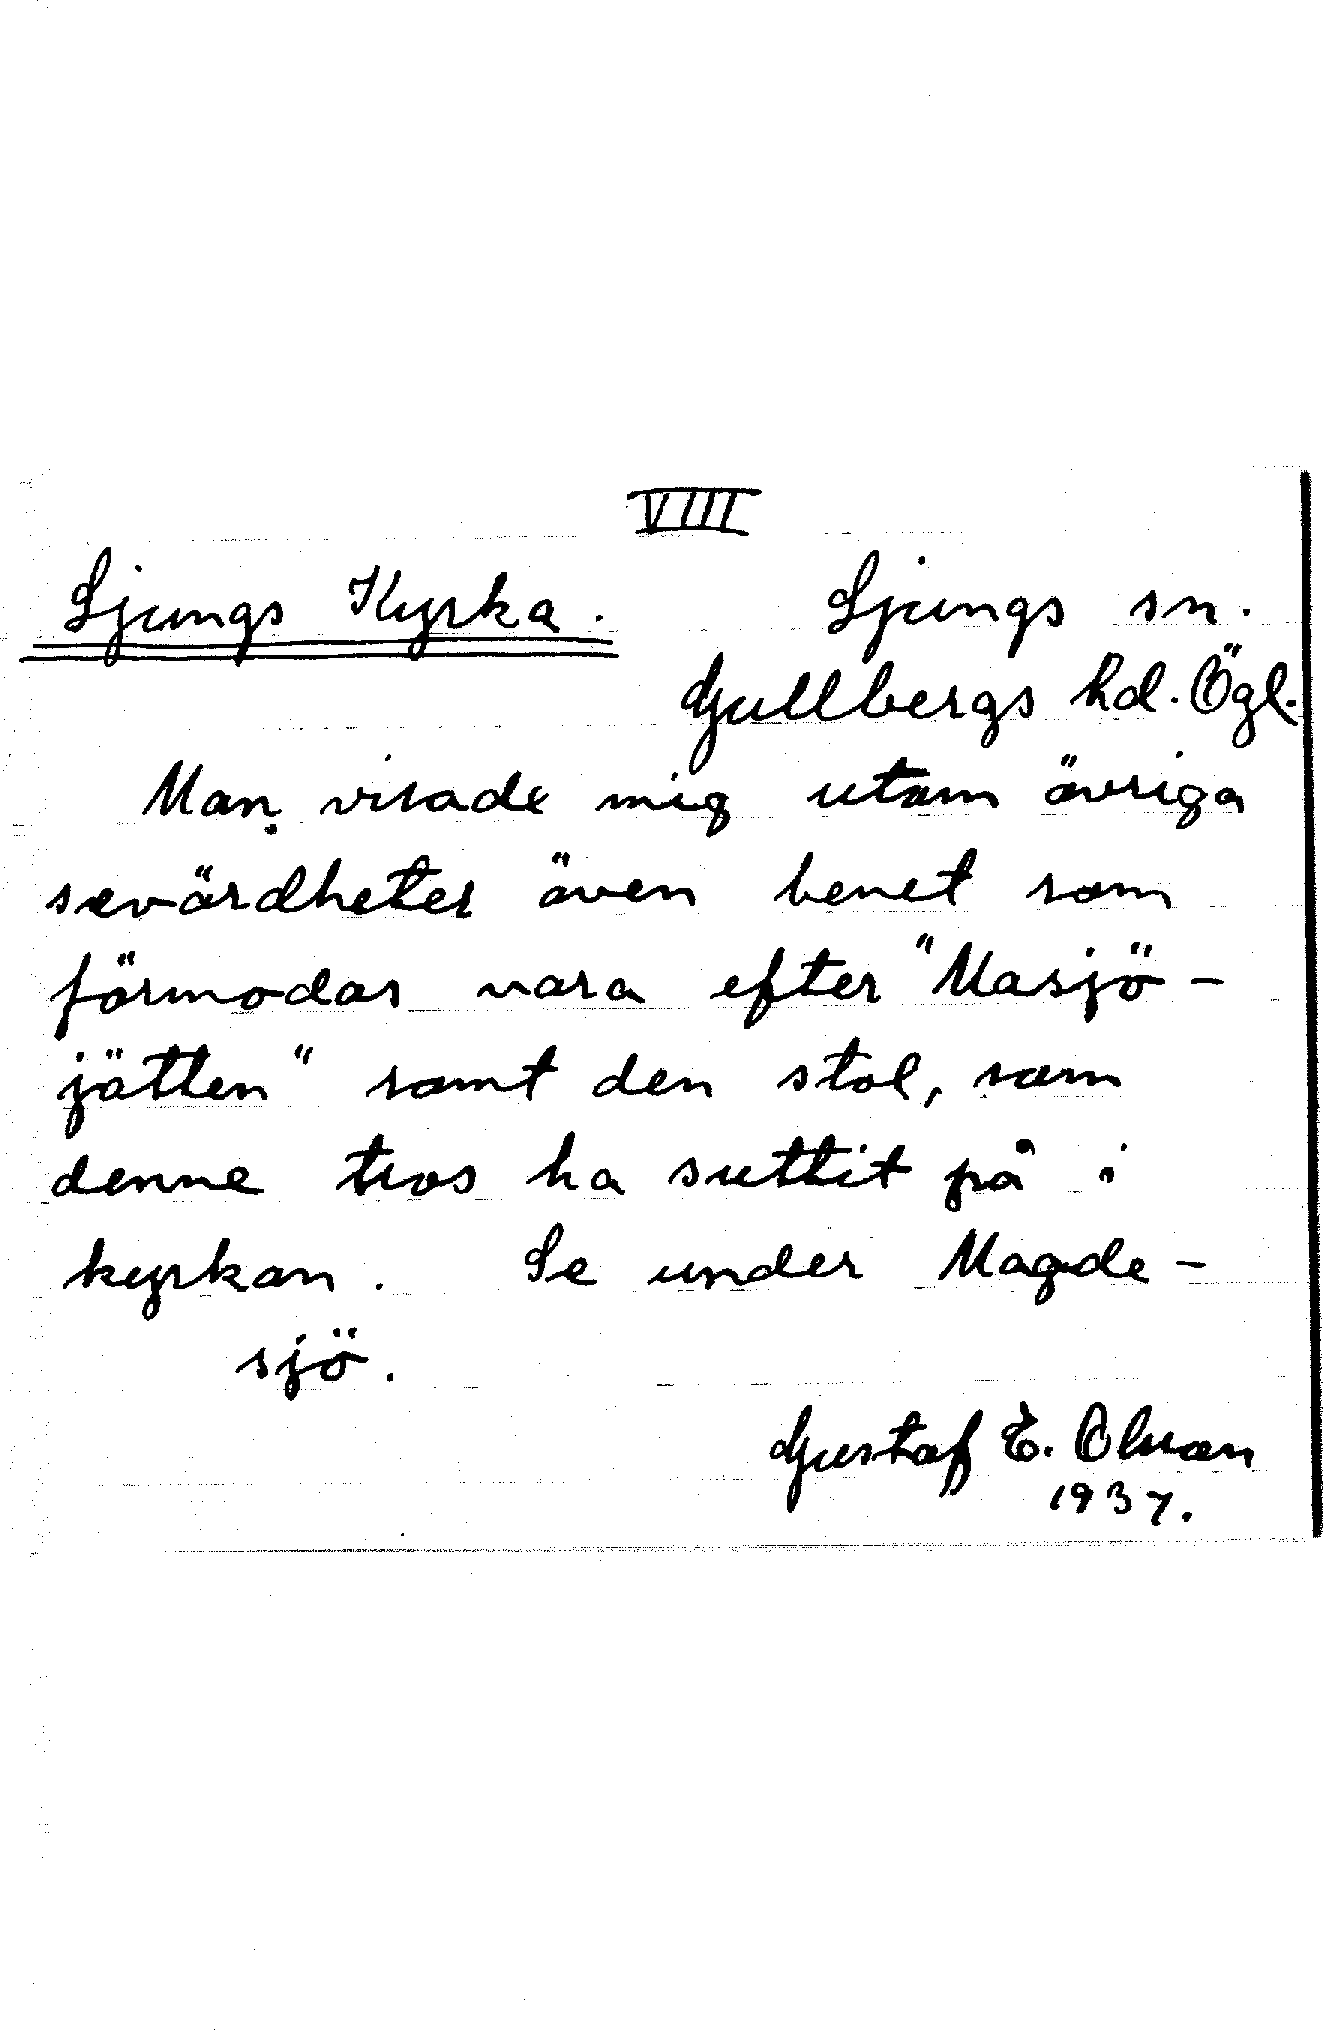 VIII
Ljungs Kyrka. Ljungs sn.
Gullbergs hd. Ögl.
Man visade mig utom övriga
sevärdheter även benet som
förmodas vara efter "Masjö-
jätten" samt den stol, som
denne tros ha suttit på i
kyrkan. Se under Magde-
sjö.
Gustaf E. Olsson
1937.